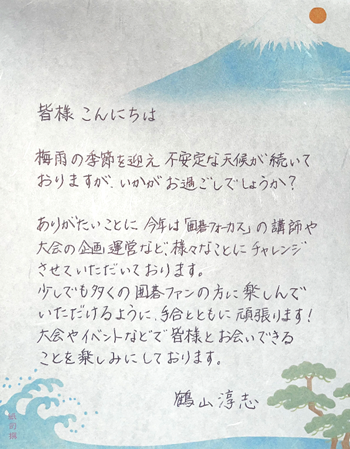 皆様 こんにちは
梅雨の季節を迎え 不安定な天候が続いて
おりますが、いかがお過ごしでしょうか？
ありがたいことに 今年は「囲碁フォーカス」の講師や
大会の企画運営など、様々なことにチャレンジ
させていただいております。
少しでも多くの囲碁ファンの方に楽しんで
いただけるように、手合とともに頑張ります！
大会やイベントなどで皆様とお会いできる
ことを楽しみにしております。
鶴山淳志